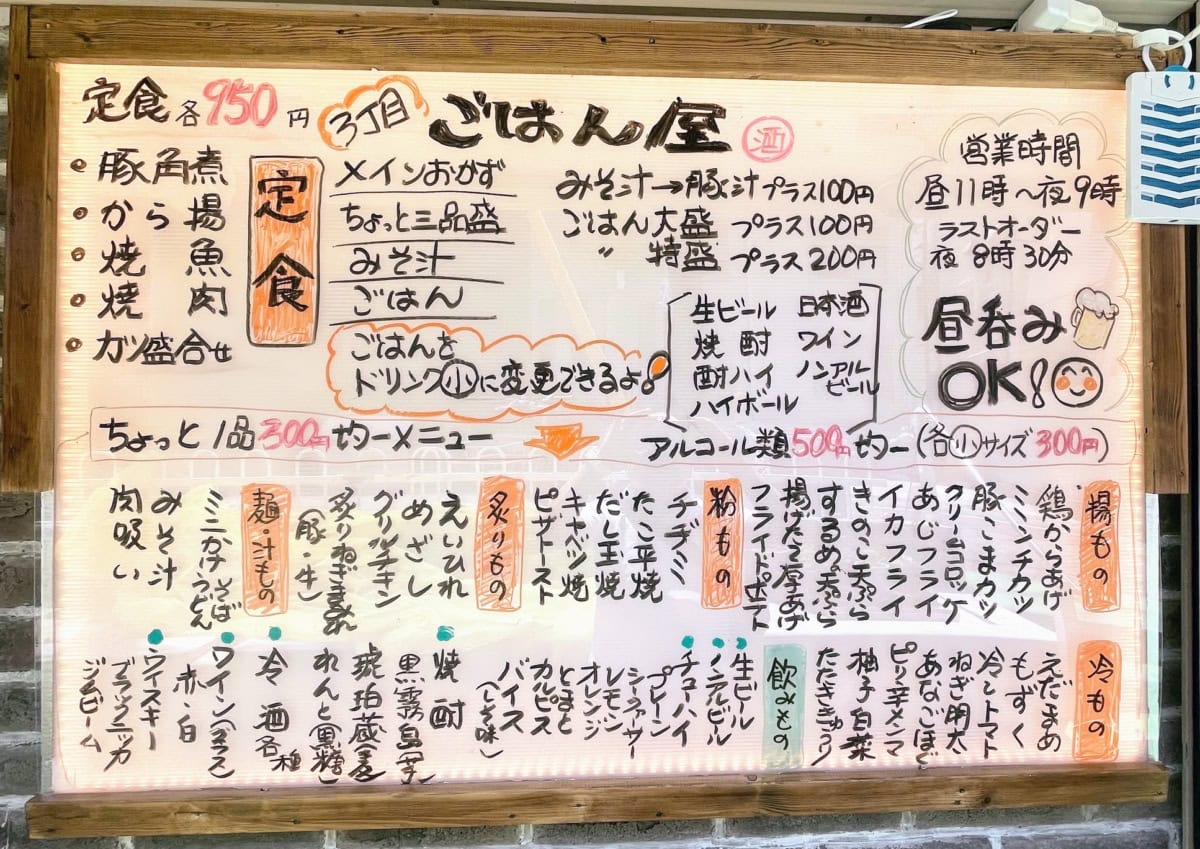 定食各950円
・豚角煮
・から揚
・焼魚
・焼肉
・カツ盛合せ
定食
メインおかず
ちょっと三品盛
みそ汁
ごはん
ごはんを
ドリンク小に変更できるよ!
3丁目
ごはん屋
酒
みそ汁→豚汁 プラス100円
ごはん大盛 プラス100円
〃 特盛 プラス200円
生ビール
焼酎
酎ハイ
ハイボール
日本酒
ワイン
ノンアル
ビール
営業時間
昼11時〜夜9時
ラストオーダー
夜8時30分
昼呑み
OK!
ちょっと1品300円均一メニュー
アルコール類500円均一(各小サイズ300円)
揚もの
鶏からあげ
ミンチカツ
豚こまカツ
クリームコロッケ
あじフライ
イカフライ
きのこ天ぷら
するめ天ぷら
揚げたて厚あげ
フライドポテト
粉もの
チヂミ
たこ平焼
だし玉焼
キャベツ焼
ピザトースト
炙りもの
えいひれ
めざし
グリルチキン
炙りねぎまみれ
(豚・牛)
麺・汁もの
ミニかけ そば うどん
みそ汁
肉吸い
冷もの
えだまめ
もずく
冷しトマト
ねぎ明太
あなごごぼう
ピリ辛メンマ
柚子白菜
たたききゅうり
飲みもの
生ビール
ノンアルビール
チューハイ
プレーン
シークァーサー
レモン
オレンジ
とまと
カルピス
バイス
(しそ味)
焼酎
黒霧島(芋)
琥珀蔵(麦)
れんと(黒糖)
冷酒各種
ワイン(グラス)
赤・白
ウイスキー
ブラックニッカ
ジムビーム